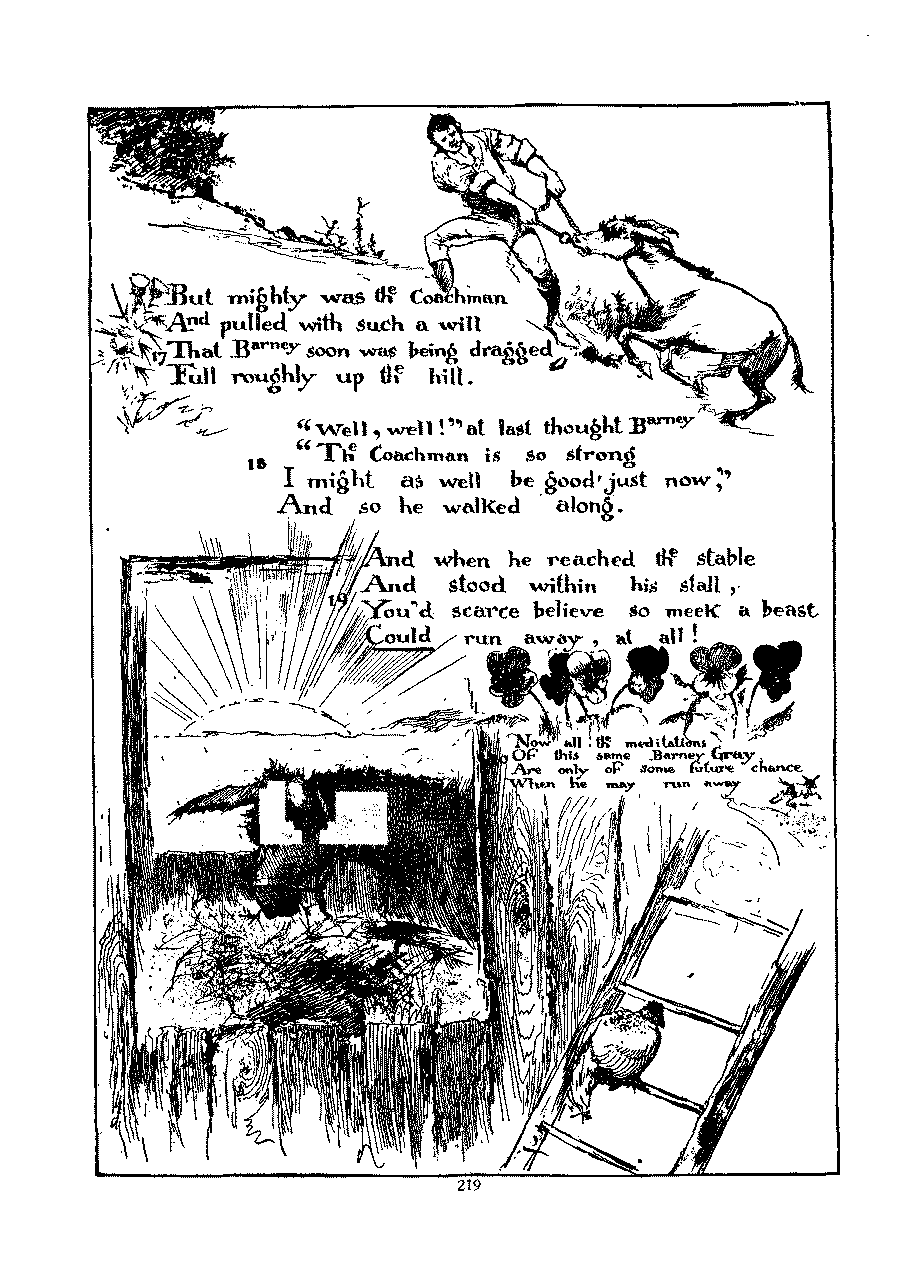 But mighty was the Coachman
And pulled with such a will
17 That Barney soon was being dragged
Full roughly up the hill.
"Well, well!" at last thought Barney
"The Coachman is so strong
18
I might as well be good just now,"
And so he walked along.
And when he reached the stable
And stood within his stall,
19 You'd scarce believe so meek a beast
Could run away, at all!
Now all the meditations
Of this same Barney Gray
Are only of some future chance
When he may run away
219